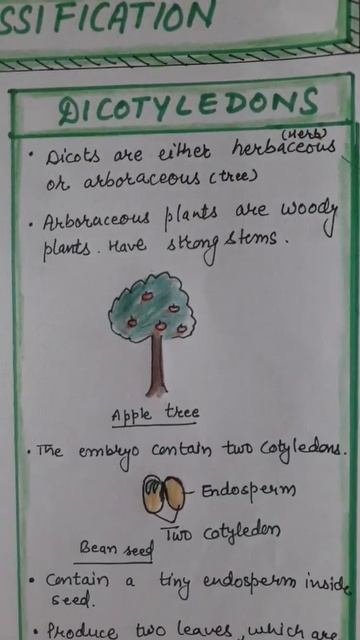 SSIFICATION
DICOTYLEDONS
(Herb)
• Dicots are either herbaceous
or arboraceous (tree)
• Arboraceous plants are woody
plants. Have strong stems.
Apple tree
• The embryo contain two cotyledons.
Endosperm
Two cotyledon
Bean seed
• Contain a tiny endosperm inside
seed.
• Produce two leaves, which are